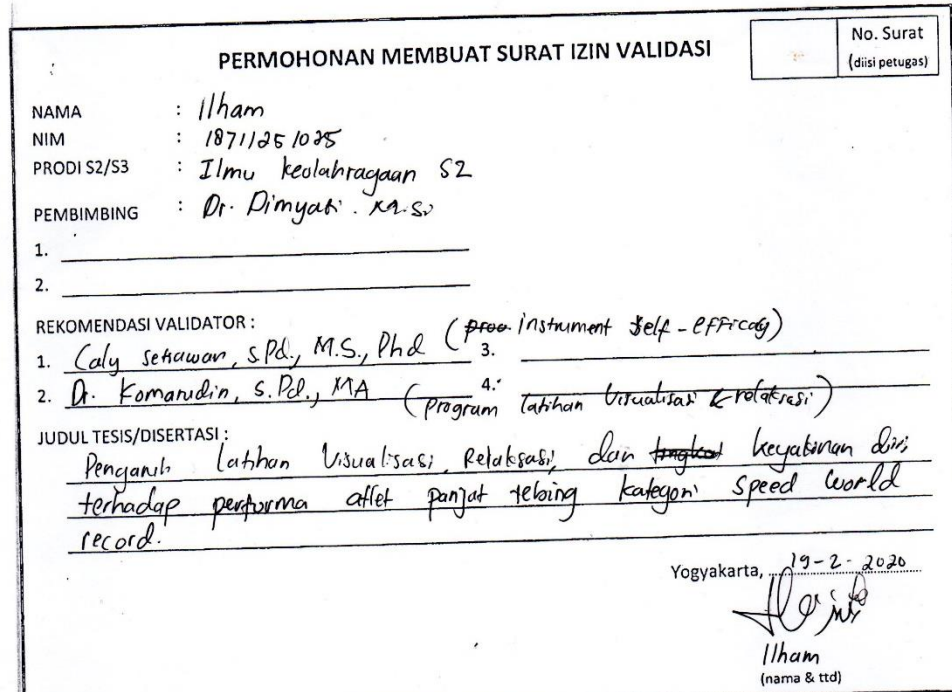 PERMOHONAN MEMBUAT SURAT IZIN VALIDASI
No. Surat
(diisi petugas)
NAMA : Ilham
NIM : 18711251025
PRODI S2/S3 : Ilmu keolahragaan S2
PEMBIMBING : Dr. Dimyati. M.Si
1.
2.
REKOMENDASI VALIDATOR :
1. Caly setiawan, S.Pd., M.S., Phd (instrument self-efficacy)
3.
2. Dr. Komarudin, S.Pd., MA (program latihan Visualisasi & relaksasi)
4.
JUDUL TESIS/DISERTASI :
Pengaruh latihan Visualisasi, Relaksasi, dan tingkat keyakinan diri
terhadap performa atlet panjat tebing kategori speed world
record.
Yogyakarta, 19-2-2020
Ilham
(nama & ttd)